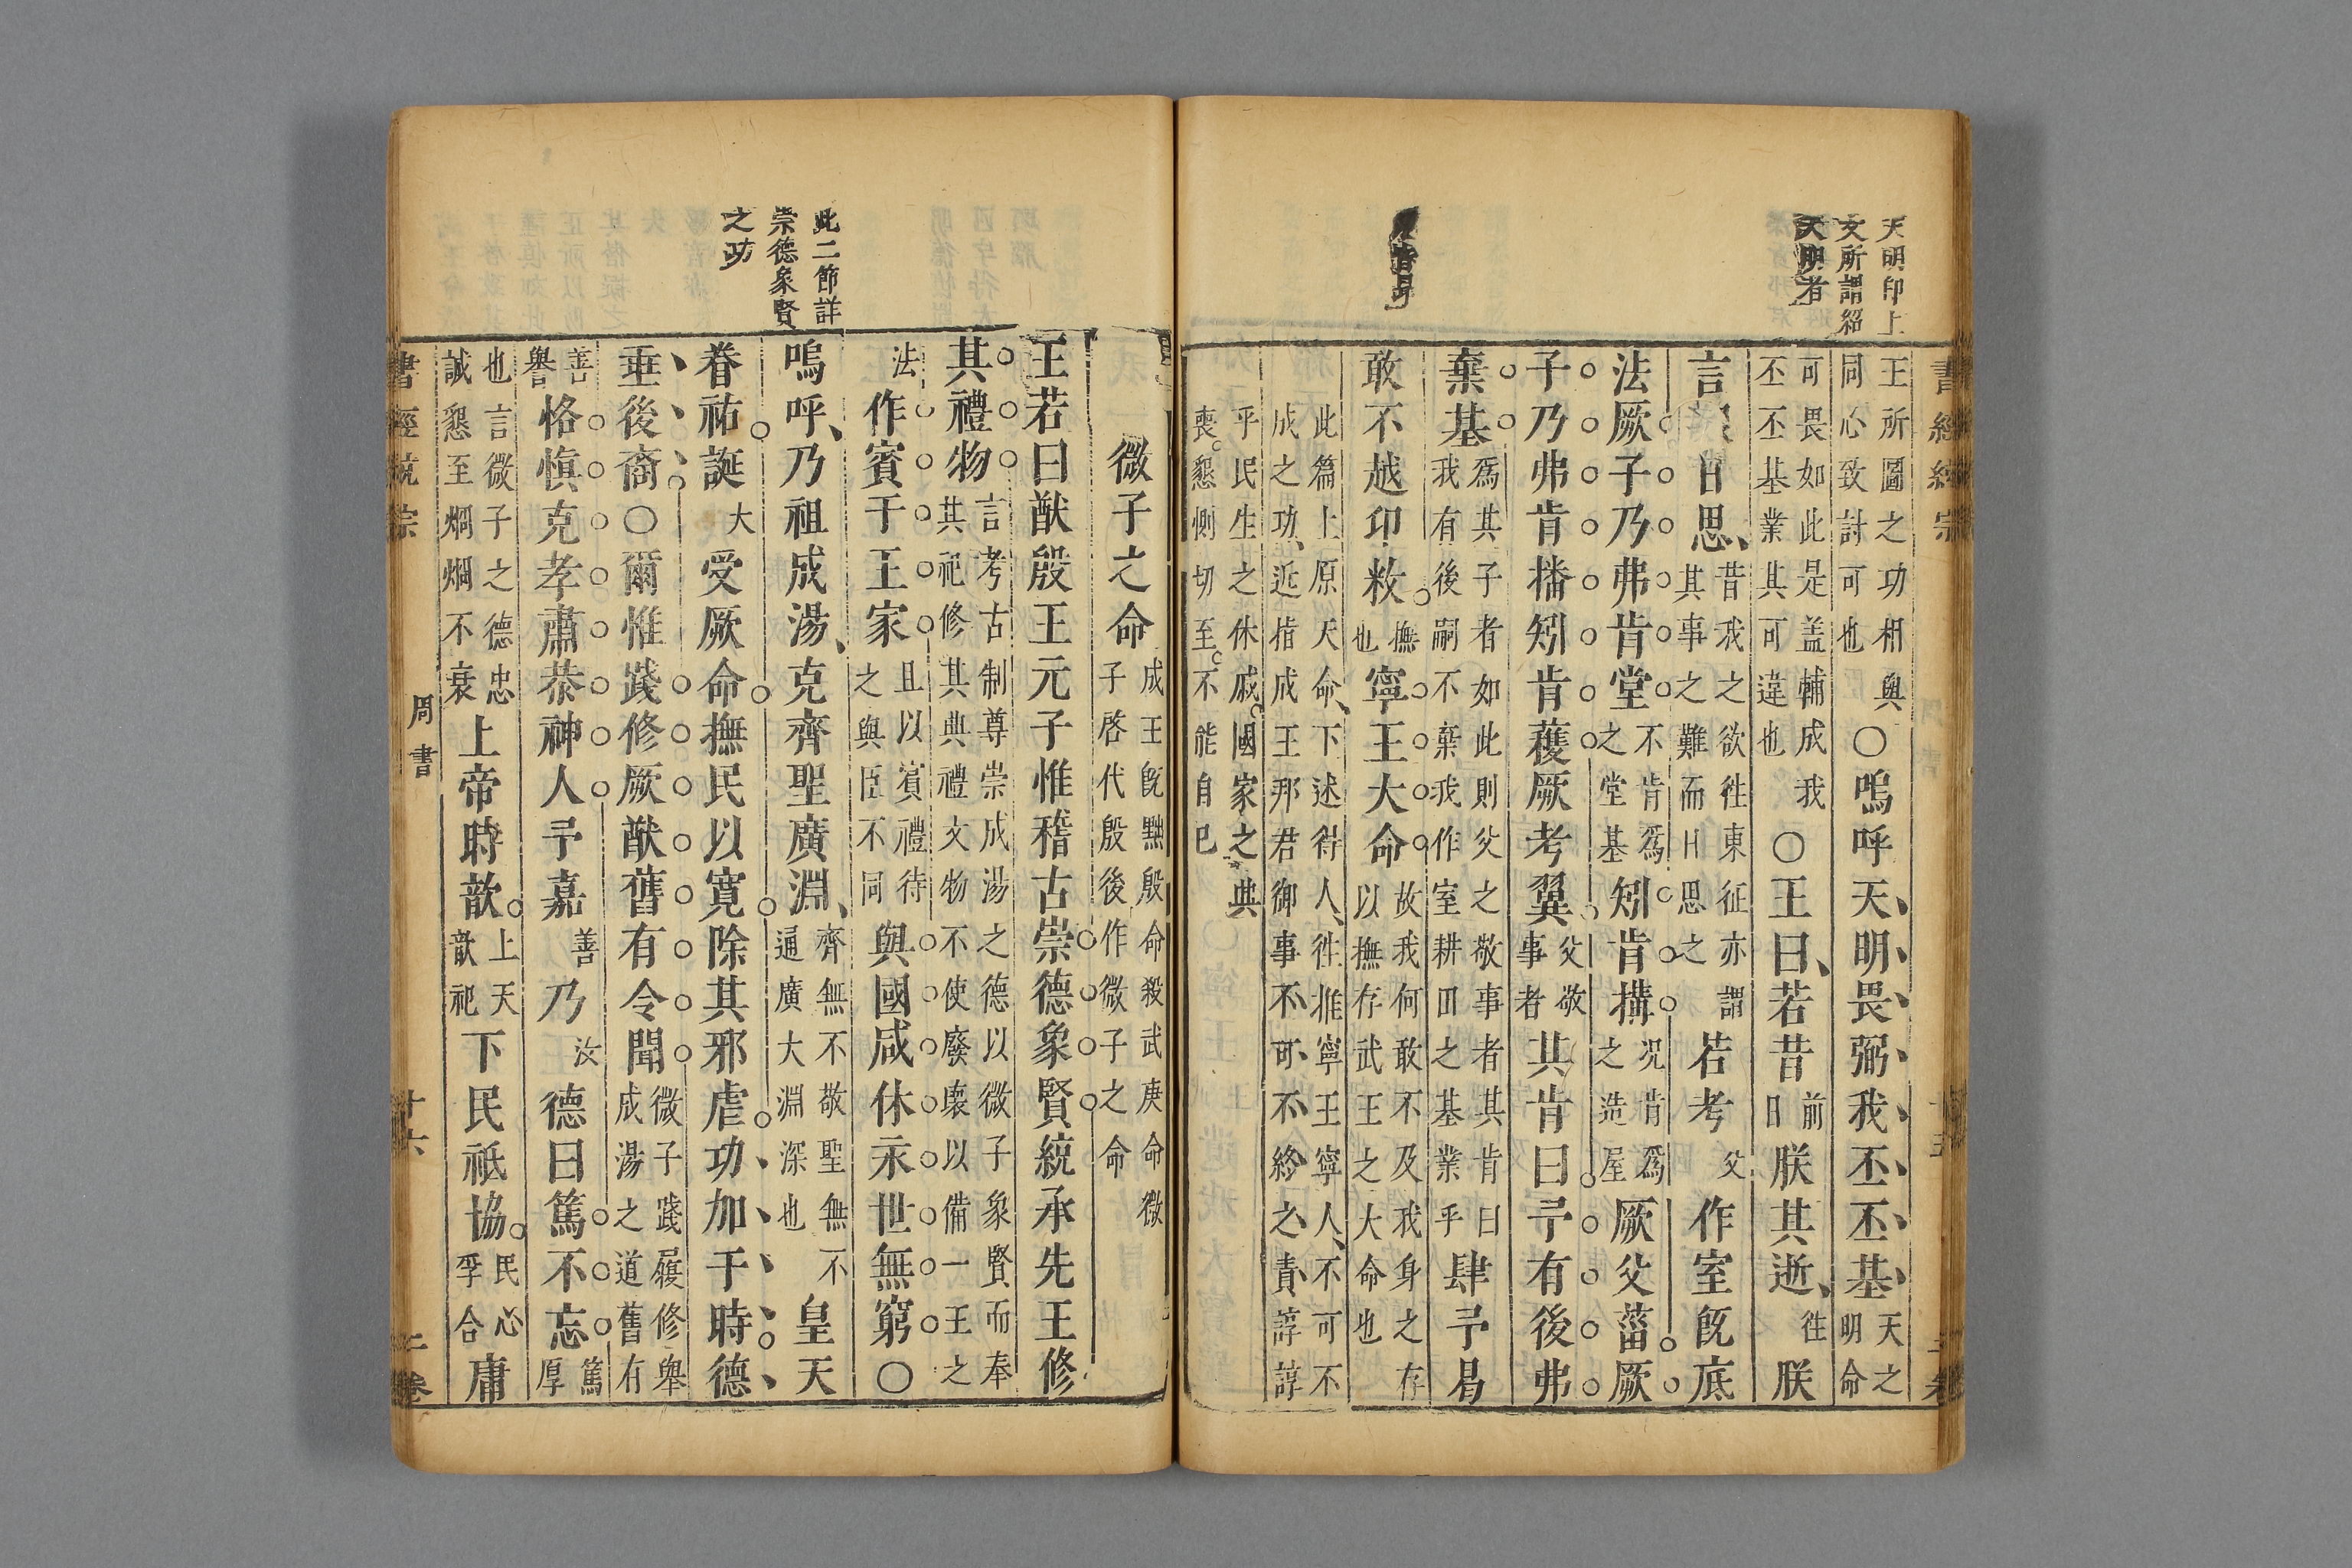 天明卽上
文所謂紹
天明者
書經統宗
王所圖之功相與
同心致討可也
○嗚呼天明畏弼我丕丕基
天之
明命
可畏如此是盖輔成我
丕丕基業其可違也
○王曰若昔
前
日
朕其逝
徃
朕
言
日思
昔我之欲徃東征亦謂
其事之難而日思之
若考
父
作室旣底
法厥子乃弗肯堂
不肯爲
之堂基
矧肯構
况肯爲
之造屋
厥父菑厥
子乃弗肯播矧肯穫厥考翼
父敬
事者
其肯曰予有後弗
棄基
爲其子者如此則父之敬事者其肯曰
我有後嗣不棄我作室耕田之基業乎
肆予曷
敢不越卬敉
撫
也
寧王大命
故我何敢不及我身之存
以撫存武王之大命也
此篇上原天命下述得人徃推寧王寧人不可不
成之功近指成王邦君御事不可不終之責諄諄
乎民生之休戚國家之典
喪懇惻切至不能自已
此二節詳
崇德象賢
之功
微子之命
成王旣黜殷命殺武庚命微
子啓代殷後作微子之命
王若曰猷殷王元子惟稽古崇德象賢統承先王修
其禮物
言考古制尊崇成湯之德以微子象賢而奉
其祀修其典禮文物不使廢壞以備一王之
法
作賓于王家
且以賓禮待
之與臣不同
與國咸休永世無窮○
嗚呼乃祖成湯克齊聖廣淵
齊無不敬聖無不
通廣大淵深也
皇天
眷祐誕
大
受厥命撫民以寬除其邪虐功加于時德
垂後裔○爾惟踐修厥猷舊有令聞
微子踐履修舉
成湯之道舊有
善
譽
恪愼克孝肅恭神人予嘉
善
乃
汝
德曰篤不忘
篤
厚
也言微子之德忠
誠懇至烱烱不衰
上帝時歆
上天
歆祀
下民祗協
民心
孚合
庸
書經統宗
周書
十六
二卷